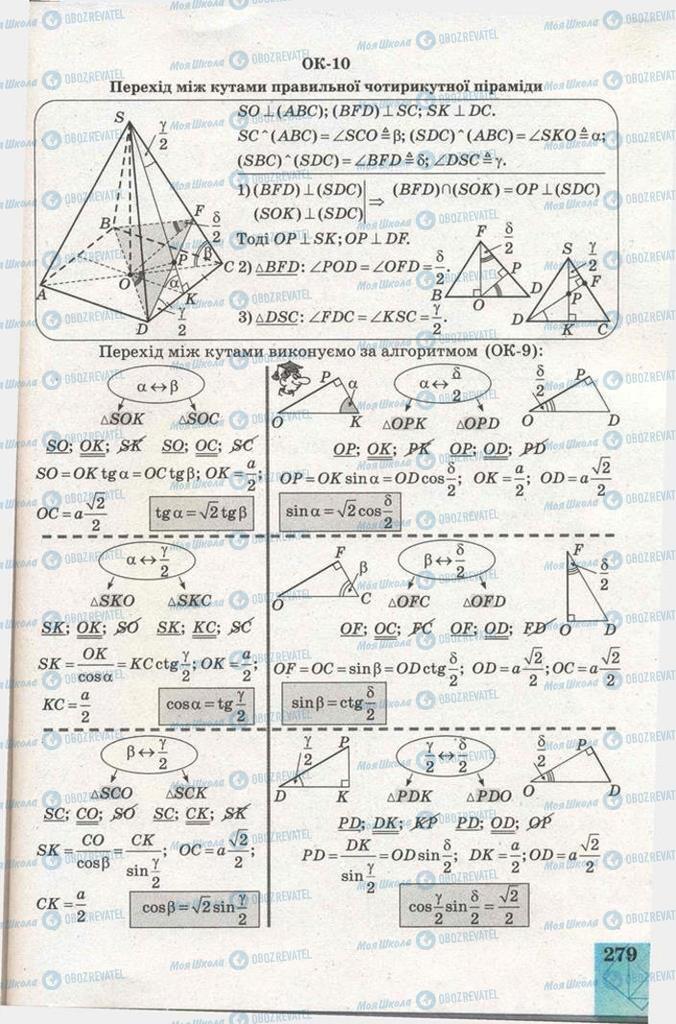 ОК-10
Перехід між кутами правильної чотирикутної піраміди
SO ⊥ (ABC); (BFD) ⊥ SC; SK ⊥ DC.
SC ^ (ABC) = ∠SCO ≜ β; (SDC) ^ (ABC) = ∠SKO ≜ α;
(SBC) ^ (SDC) = ∠BFD ≜ δ; ∠DSC ≜ γ.
1) (BFD) ⊥ (SDC) | ⇒ (BFD) ∩ (SOK) = OP ⊥ (SDC)
(SOK) ⊥ (SDC) |
Тоді OP ⊥ SK; OP ⊥ DF.
2) △BFD: ∠POD = ∠OFD = δ/2.
3) △DSC: ∠FDC = ∠KSC = γ/2.
S γ/2 B F δ/2 P β C O α K A D γ/2
F δ/2 P B O D
S γ/2 F P D K C
Перехід між кутами виконуємо за алгоритмом (ОК-9):
α ↔ β
△SOK △SOC
SO; OK; SK SO; OC; SC
SO = OK tg α = OC tg β; OK = a/2;
OC = a √2/2
tg α = √2 tg β
P α O K
α ↔ δ/2
δ/2 P O D
△OPK △OPD
OP; OK; PK OP; OD; PD
OP = OK sin α = OD cos δ/2; OK = a/2; OD = a √2/2
sin α = √2 cos δ/2
α ↔ γ/2
△SKO △SKC
SK; OK; SO SK; KC; SC
SK = OK/cos α = KC ctg γ/2; OK = a/2;
KC = a/2
cos α = tg γ/2
F β O C
β ↔ δ/2
F δ/2 O D
△OFC △OFD
OF; OC; FC OF; OD; FD
OF = OC = sin β = OD ctg δ/2; OD = a √2/2; OC = a √2/2
sin β = ctg δ/2
β ↔ γ/2
△SCO △SCK
SC; CO; SO SC; CK; SK
SK = CO/cos β = CK/sin γ/2; OC = a √2/2;
CK = a/2
cos β = √2 sin γ/2
γ/2 P D K
γ/2 ↔ δ/2
δ/2 P O D
△PDK △PDO
PD; DK; KP PD; OD; OP
PD = DK/sin γ/2 = OD sin δ/2; DK = a/2; OD = a √2/2
cos γ/2 sin δ/2 = √2/2
279
Моя Школа OBOZREVATEL